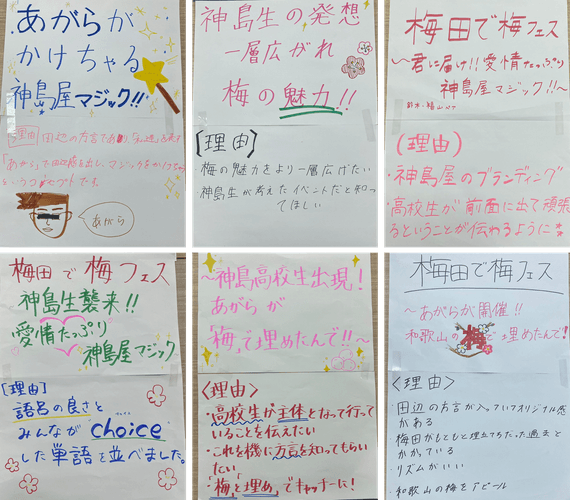 あがらが
かけちゃる
神島屋マジック!!
理由 田辺の方言であり、「私達」を表す
「あがら」で田辺感を出し、マジックをかけちゃう
というコンセプトです。
あがら
神島生の発想
一層広がれ
梅の魅力!!
【理由】
・梅の魅力をより一層広げたい
・神島生が考えたイベントだと知っ
てほしい
梅田で梅フェス
〜君に届け!!愛情たっぷり
神島屋マジック!!〜
(理由)
・神島屋のブランディング
・高校生が前面に出て頑張
るということが伝わるように
梅田で梅フェス
神島生襲来!!
愛情たっぷり
神島屋マジック
【理由】
語呂の良さと
みんなが choice
した単語を並べました。
〜神島高校生出現!
あがらが
「梅」で埋めたんで!!〜
<理由>
・高校生が主体となって行って
いることを伝えたい
・これを機に方言を知ってもらい
たい
・「梅と埋め」でキャッチーに!
梅田で梅フェス
〜あがらが開催!!
和歌山の梅で埋めたんで!
<理由>
・田辺の方言が入っていてオリジナル感
がある
・梅田がもともと埋立ちだった過去と
かかっている
・リズムがいい
・和歌山の梅をアピール